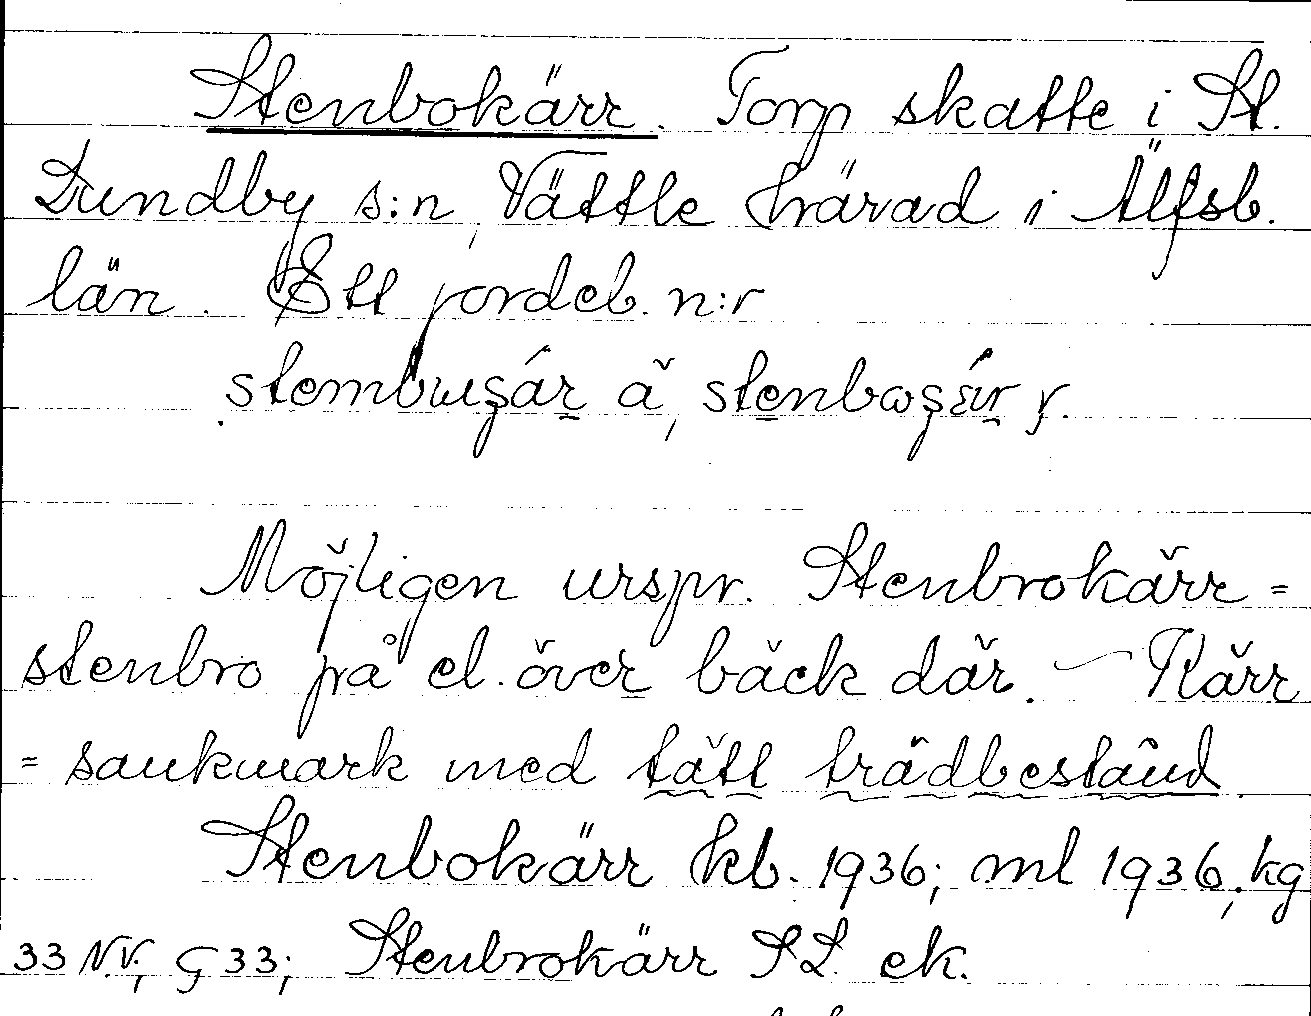 Stenbokärr. Torp skatte i St.
Lundby s:n, Vättle härad i Älfsb.
län. Ett jordeb. n:r
å, y.
Möjligen urspr. Stenbrokärr =
stenbro på el. över bäck där. — Kärr
= sankmark med tätt trädbestånd.
Stenbokärr kb. 1936; ml 1936, kg
33 NV, G 33; Stenbrokärr SL ek.